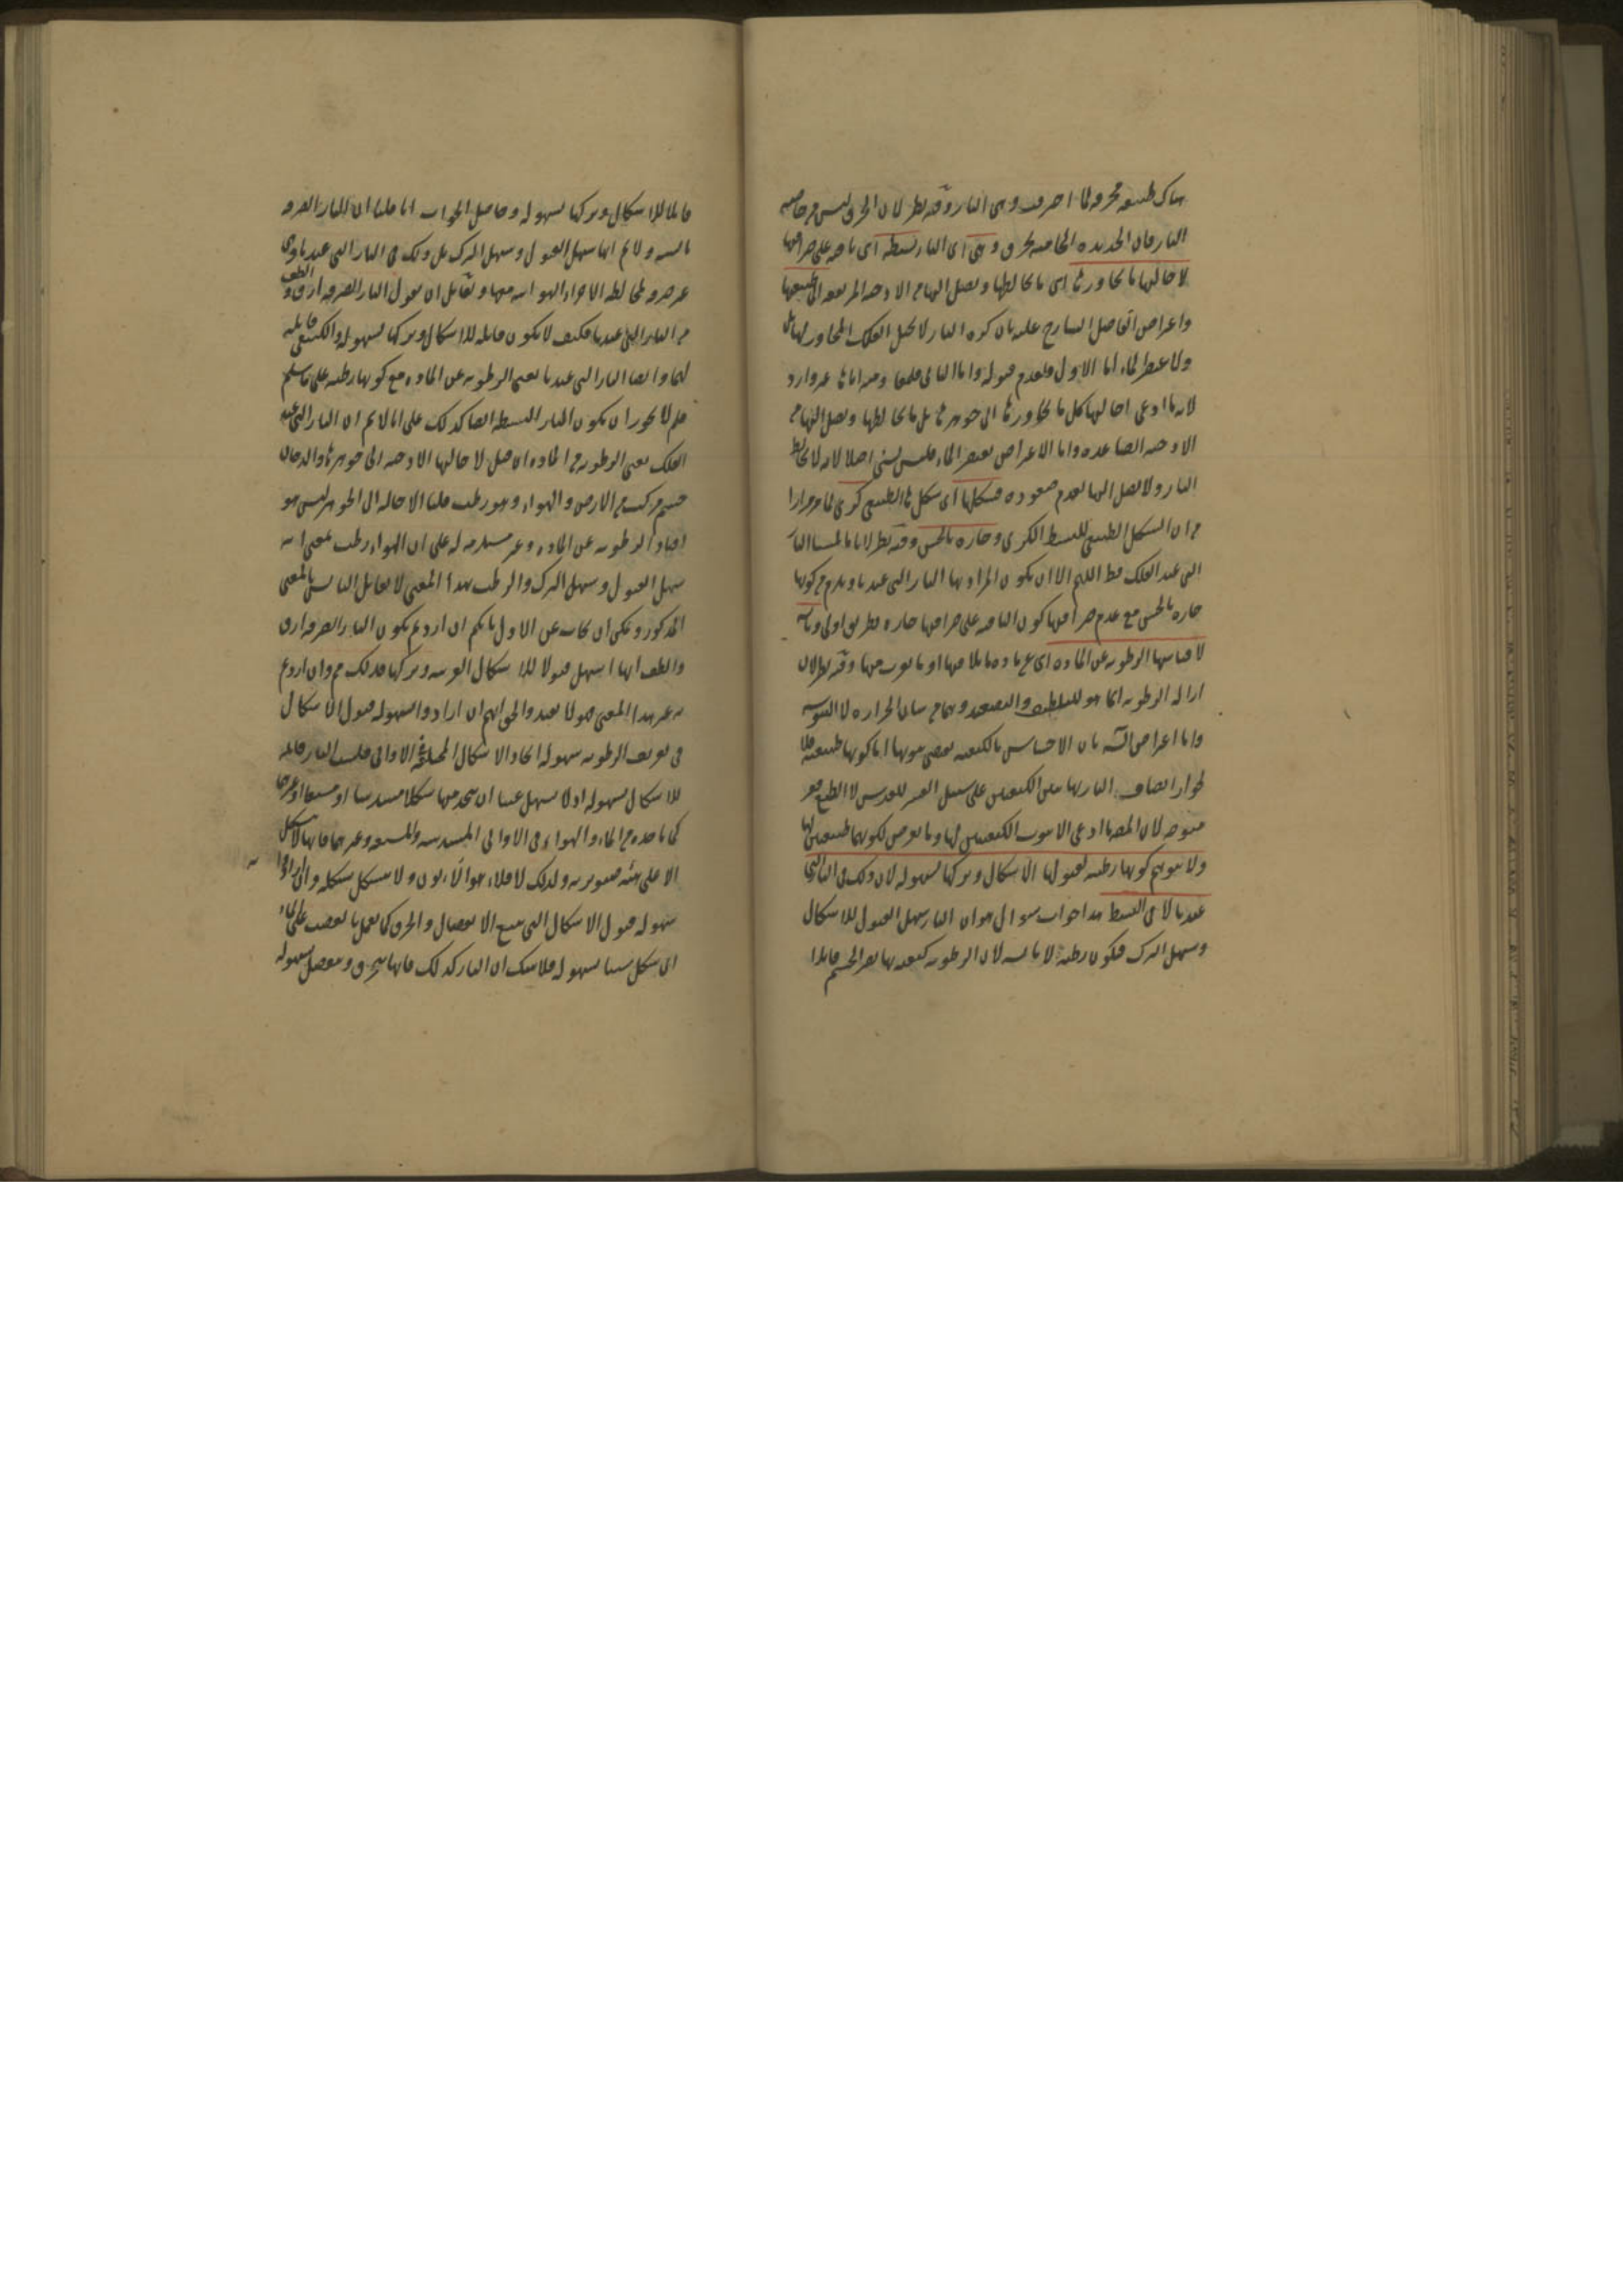 هناك طبيعه محرقه لما احترقت وهى النار وفيه نظر لان الحرق ليس من خاصيه
النار فان الحديده الحاميه تحرق وهى اى النار بسيطه اى باقيه على صرافتها
لاحالتها ما يجاورها اى ما يخالطها ويصل اليها من الادخنه المرتفعه الى طبيعتها
واعترض الفاضل الشارح عليه بان كره النار لا تحيل الفلك المجاور لها بل
ولا عنصر الماء اما الاول فلعدم قبوله واما الثانى
لانه ما ادعى احالتها كل ما يجاورها الى جوهرها بل ما يخالطها ويصل اليها من
الادخنه الصاعده واما الاعتراض بعنصر الماء فليس بشى اصلا لانه لا يخالط
النار ولا يصل اليها لعدم صعوده فشكلها اى شكلها الطبيعى كرى لما مر مرارا
من ان الشكل الطبيعى للبسيط الكرى وحاره بالحس وفيه نظر لانا ما لمسنا النار
التى عند الفلك قط اللهم الا ان يكون المراد بها النار التى عندنا ويلزم من كونها
حاره بالحس مع عدم صرافتها كون الباقيه على صرافتها حاره بطريق اولى ويابسه
لافنائها الرطوبه عن الماده اى عن ماده ما يلاقيها او ما يقرب منها وفيه نظر لان
ازاله الرطوبه انما هو للتلطيف والتصعيد وهما من شان الحراره لا اليبوسه
واما اعتراض بان الاحساس بالكيفيه يقتضى ثبوتها اما كونها طبيعيه فلا
لجواز اتصاف النار بهاتين الكيفيتين على سبيل القسر لا الطبع فغير
متوجه لان المص ما ادعى الا ثبوت الكيفيتين لها وما تعرض لكونهما طبيعيتين لها
ولا يتوهم كونها رطبه لقبولها الاشكال وتركها بسهوله لان ذلك فى النار التى
عندنا لا فى البسيط هذا جواب سؤال هو ان النار سهل القبول للاشكال
وسهل الترك فتكون رطبه لا يابسه لان الرطوبه كيفيه بها يصير الجسم قابلا
قابلا للاشكال وتركها بسهوله وحاصل الجواب انا قلنا ان النار الصرفه
يابسه ولا نم انها سهل القبول وسهل الترك بل ذلك فى النار التى عندنا وهى
غير صرفه لمخالطه الاجزاء الهوائيه معها ولقائل ان يقول النار الصرفه ارق والطف
من النار التى عندنا فكيف لا يكون قابله للاشكال وتركها بسهوله والكثيف قابله
لهما وايضا النار التى عندنا تفنى الرطوبه عن الماده مع كونها رطبه على ما سلم
فلم لا يجوز ان يكون النار البسيطه ايضا كذلك على انا لا نم ان النار التى عند
الفلك تفنى الرطوبه من الماده فان قيل لاحالتها الادخنه الى جوهرها والدخان
جسم مركب من الارض والهواء وهو رطب قلنا الاحاله الى الجوهر ليس هو
افناء الرطوبه عن الماده وغير مستلزمه له على ان الهواء رطب بمعنى انه
سهل القبول وسهل الترك والرطب بهذا المعنى لا يقابل اليابس بالمعنى
المذكور ويمكن ان يجاب عن الاول بانكم ان اردتم بكون النار الصرفه ارق
والطف انها اسهل قبولا للاشكال الغريبه وتركها فذلك مم وان اردتم
به غير هذا المعنى فهو لا يفيد والحق انهم ان ارادوا بسهوله قبول الاشكال
فى تعريف الرطوبه سهوله اتخاذ الاشكال المختلفه الاوانى فليست النار قابله
للاشكال بسهوله اذ لا يسهل علينا ان نتخذ منها شكلا مسدسا او مسبعا او غيرهما
كما ناخذه من الماء والهواء فى الاوانى المسدسه والمسبعه وغيرهما فانها لا تتشكل
الا على هيئه صنوبريه ولذلك لا تملاء جوانب الاتون ولا تتشكل بشكله وان ارادوا به
سهوله قبول الاشكال التى تتبع الانفصال والحرق كما نعمل
اى شكل شئنا بسهوله فلا شك ان النار كذلك فانها تنحرق وتنفصل بسهوله